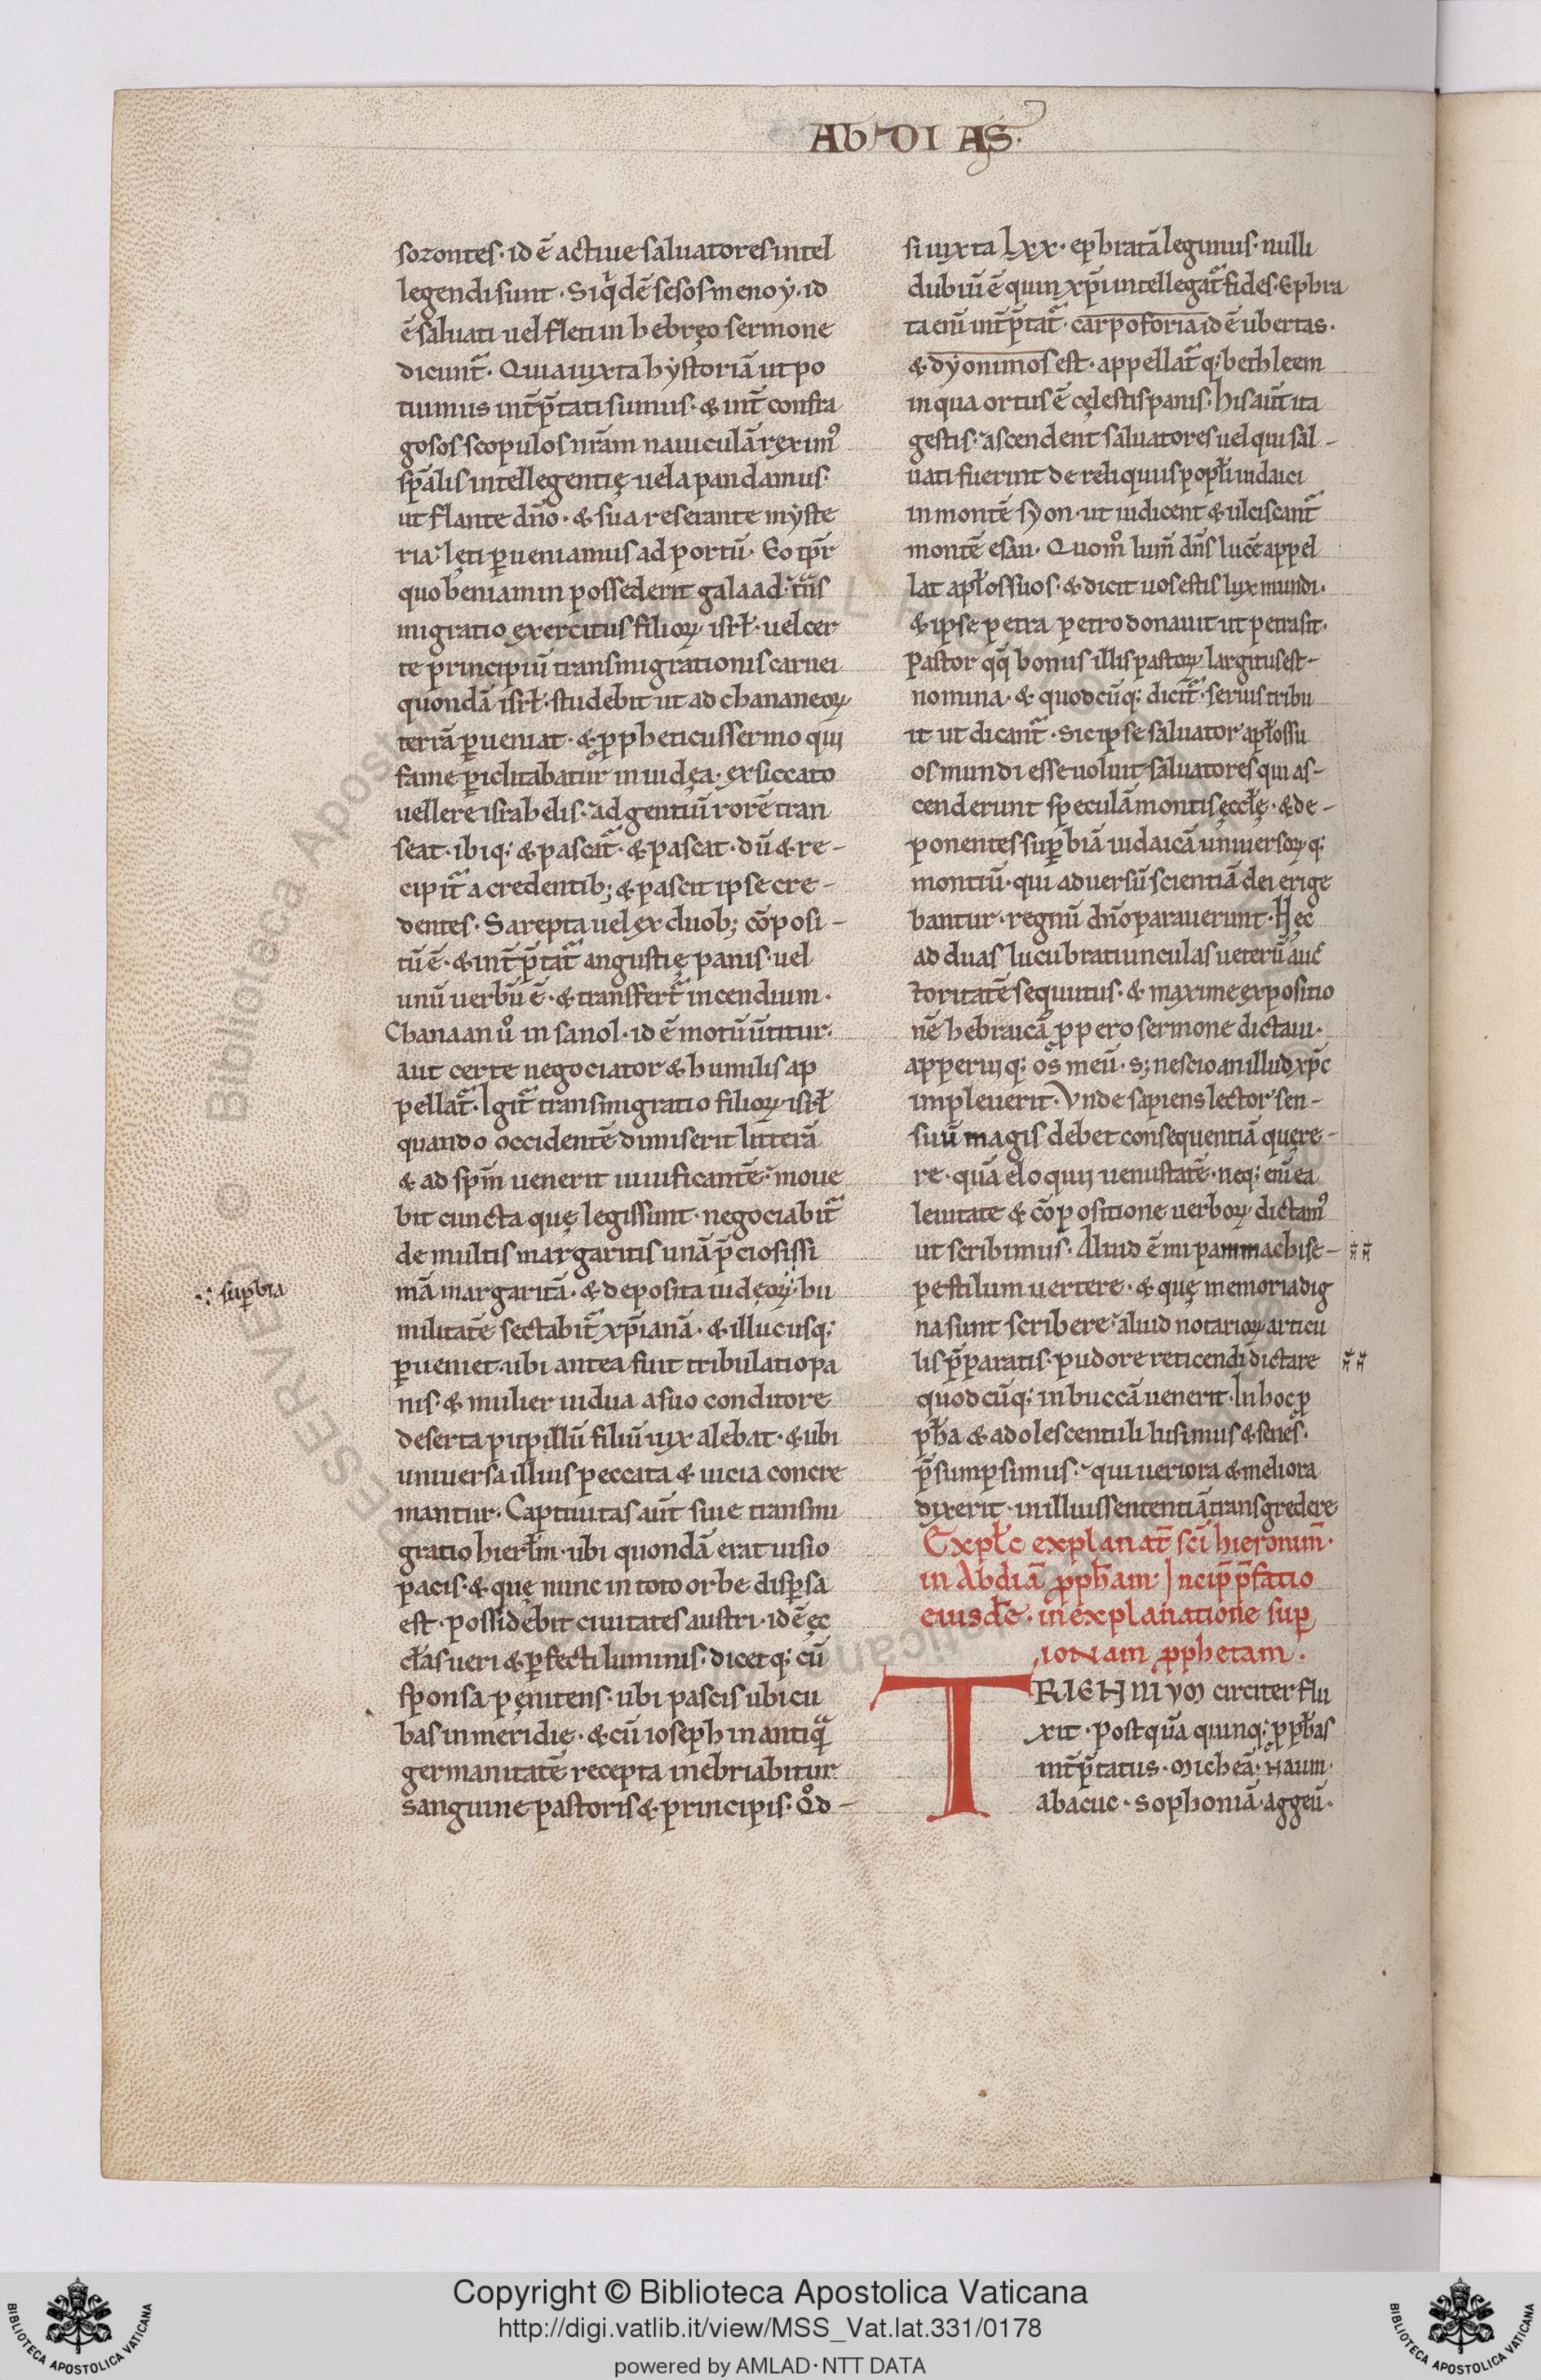 AB DI AS.
sozontes· id ē actiue saluatores intel
legendi sunt· Siq̇dē sesosmenoẏ· id
ē saluati uel fleti in hebręo sermone
dicunt᷒· Quia iuxta hẏstoriā ut po
tuimus int̄p̄tati sumus· & int̄ confra
gosos scopulos nr̄am nauiculā rexim᷒
sp̄alis intellegentię uela pandamus·
ut flante dn̄o· & sua reserante mẏste
ria· lęti ꝑueniamus ad portū· Eo tp̄r
quo beniamin possederit galaad· t̄ns
migratio exercitus filioꝝ isrł· uel cer
te principiū transmigrationis carnei
quondā isrł· studebit ut ad chananeoꝝ
terrā ꝑueniat· & ꝓpheticus sermo qui
fame ꝑiclitabatur in iudęa· exsiccato
uellere israhelis· ad gentiū rorē tran
seat· ibiq; & pascit᷒· & pascat· dū & re-
cipit᷒ a credentib; & pascit ipse cre-
dentes· Sarepta uel ex duob; cōposi-
tū ē· & int̄p̄tat᷒ angustię panis· uel
unū uerbū ē· & transfert᷒ incendium·
Chanaan ů in sanol· id ē motū ūtitur·
aut certe negociator & humilis ap
pellat᷒· Igit᷒ transmigratio filioꝝ isrł
quando occidentē dimiserit litterā
& ad sp̄m uenerit uiuificantē· moue
bit cuncta quę legissunt· negociabit᷒
de multis margaritis unā p̄ciosissi
mā margaritā· & deposita iudęoꝝ·̈ hu
∴ suꝑbia
militatē sectabit᷒ xp̄ianā· & illuc usq;
ꝑueniet· ubi antea fuit tribulatio pa
nis· & mulier uidua a suo conditore
deserta pupillū filiū uix alebat· & ubi
uniuersa illius peccata & uicia concre
mantur· Captiuitas aūt siue transmi
gratio hierłm· ubi quondā erat uisio
pacis· & quę nunc in toto orbe disꝑsa
est· possidebit ciuitates austri· id ē ęc
cłas ueri & ꝑfecti luminis· dicetq; cū
sponsa pęnitens· ubi pascis ubi cu
bas in meridię· & cū ioseph in antiq᷒
germanitatē recepta inebriabitur
sanguine pastoris & principis· Qd̊-
si iuxta lxx· ephratā legimus· nulli
dubiū ē quin xp̄i intellegat᷒ fides· Ephra
ta eni int̄p̄tat᷒· carpoforia id ē ubertas·
& dẏonimos est· appellat᷒q; bethleem
in qua ortus ē cęlestis panis· his aūt ita
gestis· ascendent saluatores uel qui sal-
uati fuerint de reliquiis popłi iudaici
in montē sẏon· ut iudicent & ulciscant᷒
montē esau· Quom̊ lum̄ dn̄s lucē appel
lat apłos suos· & dicit uos estis lux mundi·
& ipse petra petro donauit ut petra sit·
Pastor qq̄ bonus illis pastoꝝ largitus est-
nomina· & quodcūq; dicit᷒· seruis tribu
it ut dicant᷒· Sic ipse saluator apłos su
os mundi esse uoluit saluatores qui as-
cenderunt speculā montis ęccłę· & de-
ponentes suꝑbiā iudaicā uniuersoꝝq;
montiū· qui aduersū scientiā dei erige
bantur· regnū dn̄o parauerunt· Hęc
ad duas lucubratiunculas ueterū auc̄
toritatē sequutus· & maxime expositio
nē hebraicā ꝓpero sermone dictaui·
apperuiq; os̊ meū· s; nescio an illud xp̄c
impleuerit· Vnde sapiens lector sen-
suū magis debet consequentiā quęre-
re· quā eloquii uenustatē· neq; enī ea
leuitate & cōpositione uerboꝝ dictam᷒
ut scribimus· Aliud ē mi pammachi se-
pe stilum uertere· & quę memoria dig
na sunt scribere· aliud notarioꝝ articu
lis p̄paratis· pudore reticendi dictare
quodcūq; in buccā uenerit· In hoc ꝓ
pħa & adolescentuli lusimus & senes·
p̄sumpsimus· qui ueriora & meliora
dixerit· in illius sententiā transgredere
Expłc explanat̄ sc̄i hieronim̄·
in Abdiā ꝓpħam· Incip̄ p̄fatio
eiusđe· in explanatione suꝑ
ionam ꝓphetam·
TRIENNIVM circiter flu
xit· Postquā quinq; ꝓpħas
int̄p̄tatus· Micheā· Naum·
abacuc· Sophoniā· aggeū·
Copyright © Biblioteca Apostolica Vaticana
http://digi.vatlib.it/view/MSS_Vat.lat.331/0178
powered by AMLAD·NTT DATA
BIBLIOTECA APOSTOLICA VATICANA
BIBLIOTECA APOSTOLICA VATICANA